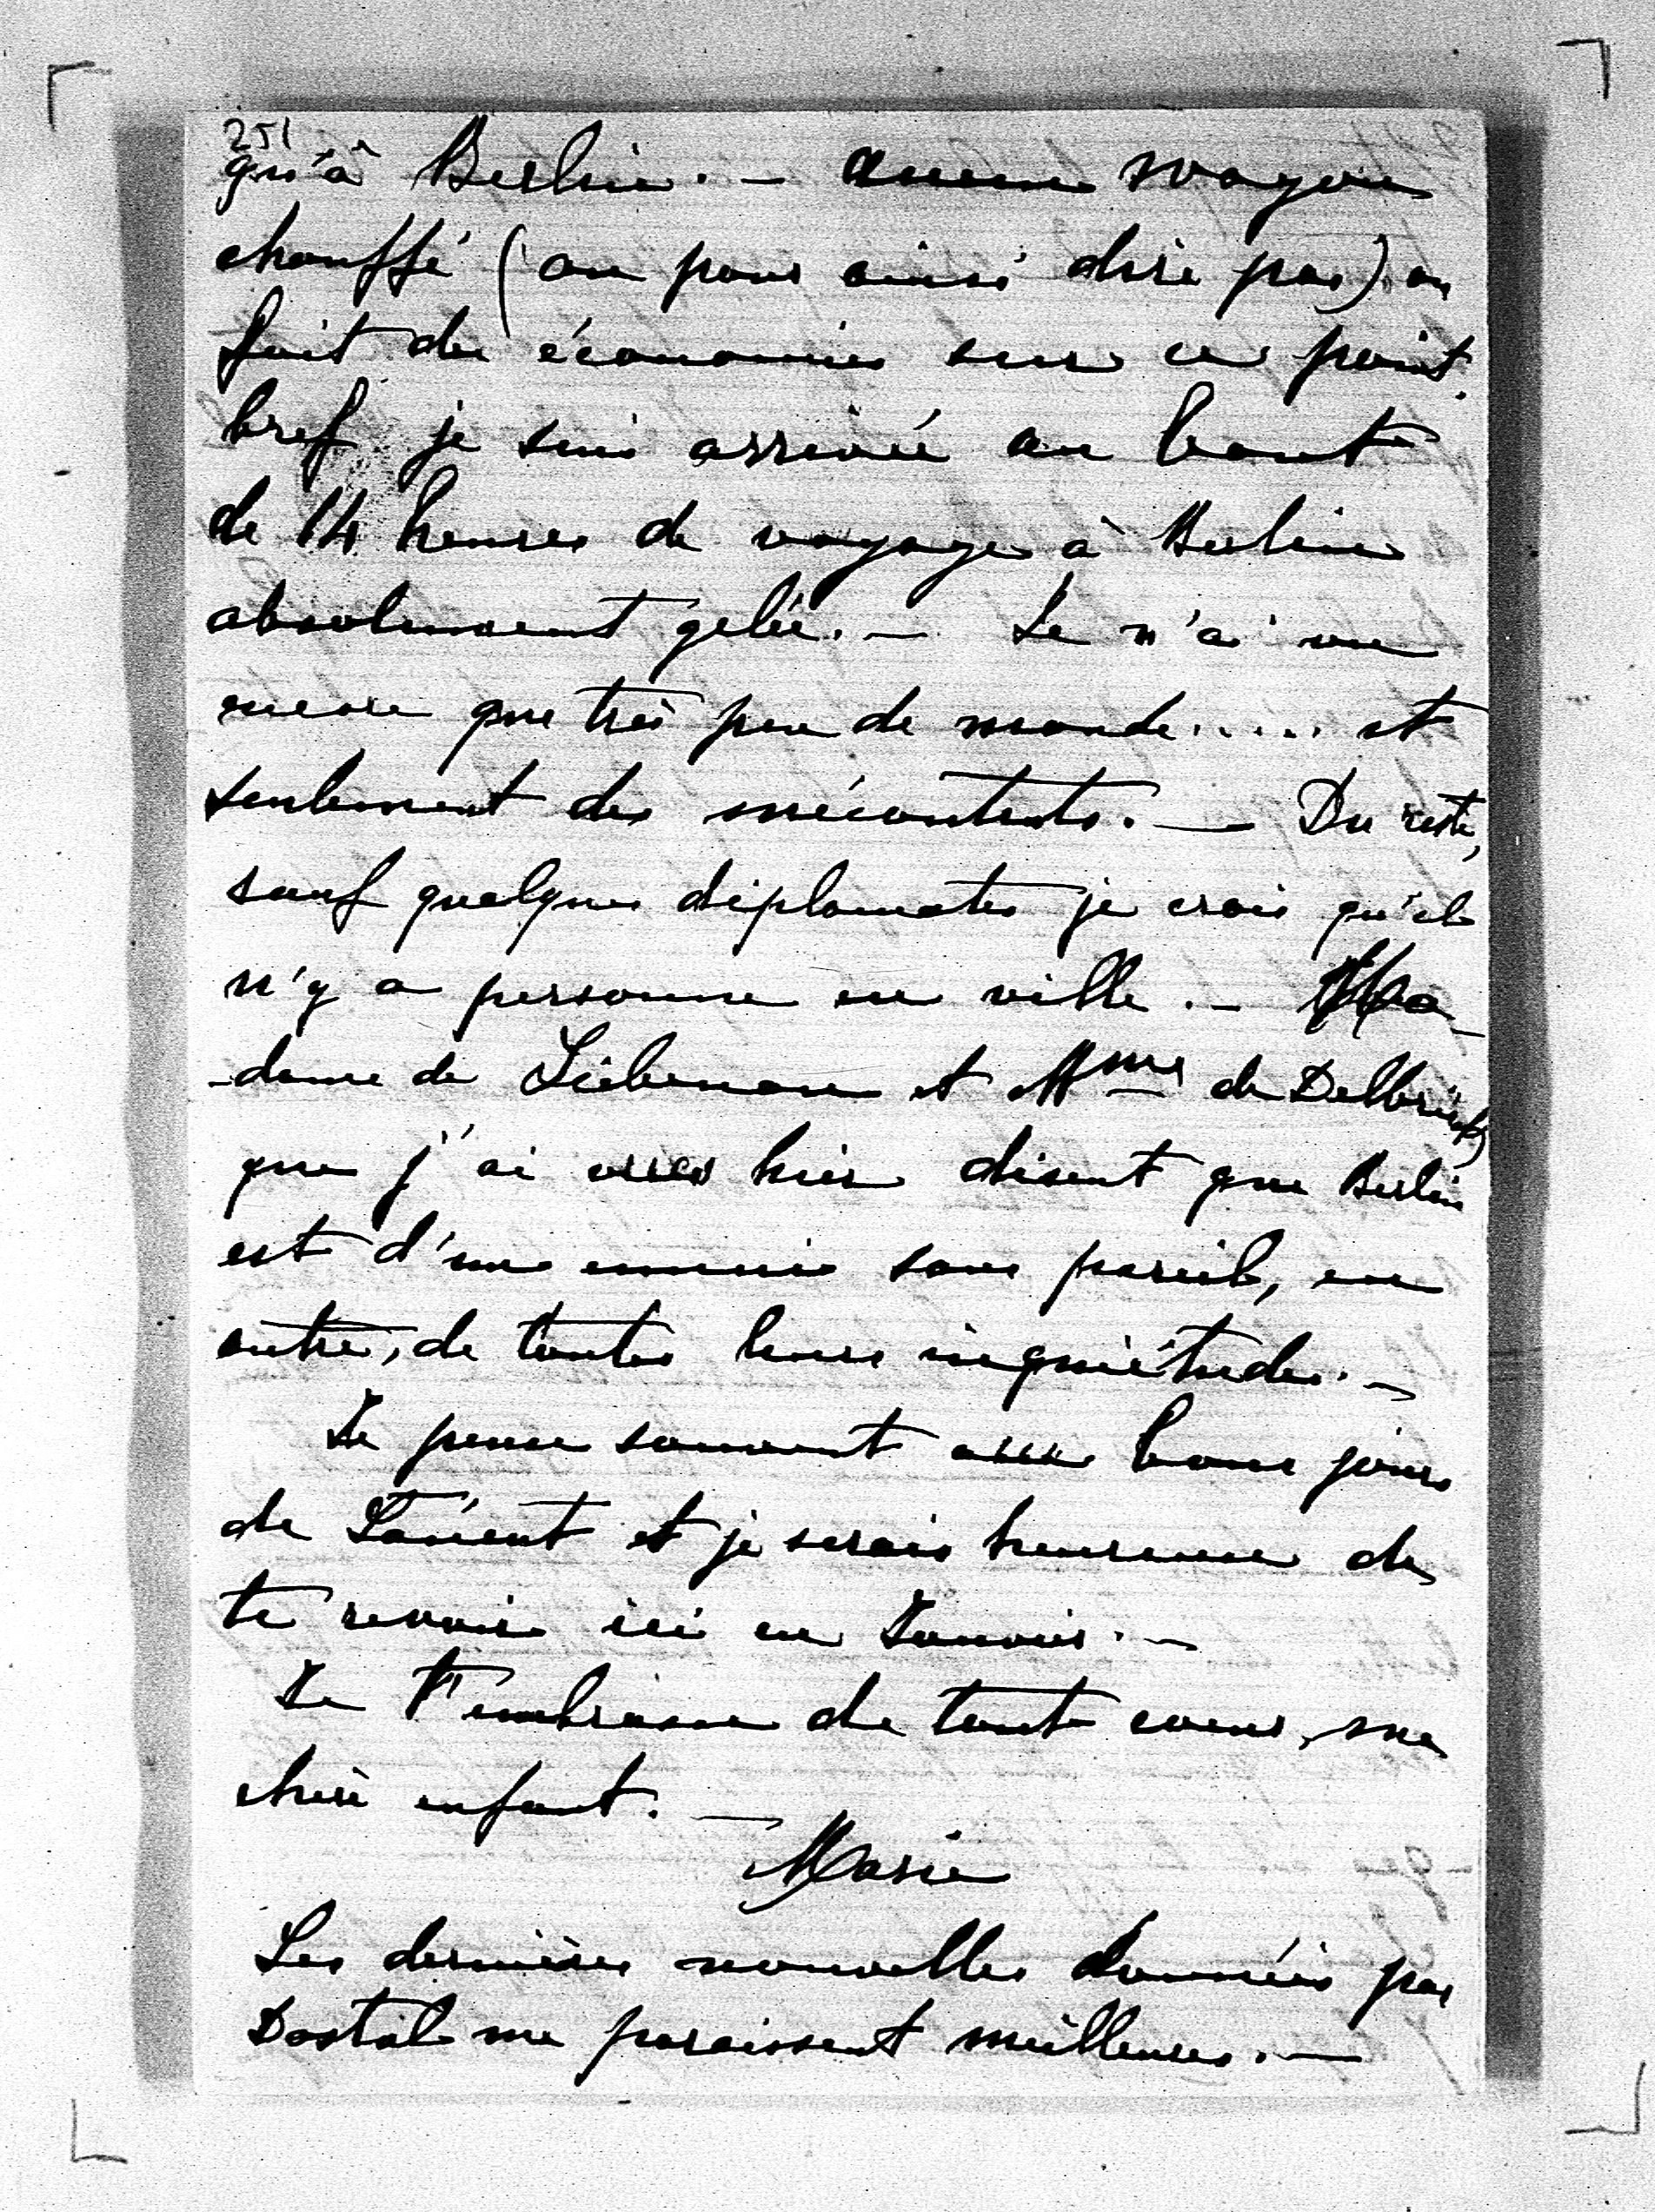 251
qu'à Berlin. — aucun wagon
chauffé (ou pour ainsi dire pas) on
fait des économies sur ce point.
bref je suis arrivée au bout
de 14 heures de voyage à Berlin
absolument gelée. — Je n'ai vu
encore que très peu de monde..... et
seulement des mécontents. — Du reste,
sauf quelques diplomates je crois qu'il
n'y a personne en ville. — Ma-
-dame de Liebenau et Mme de Delbrück
que j'ai vues hier disent que Berlin
est d'un ennui sans pareil, en
outre, de toutes leurs inquiétudes. —
Je pense souvent aux bons jours
de et je serais heureuse de
te revoir ici en Janvier. —
Je t'embrasse de tout coeur, ma
chère enfant. —
Marie
Les dernières nouvelles données par
Dostal me paraissent meilleures. —